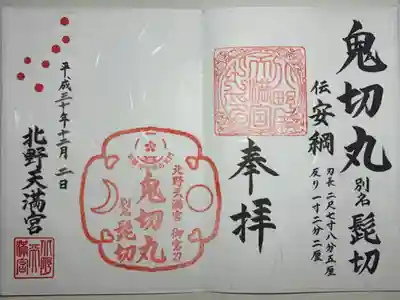 鬼切丸 別名 髭切
伝 安綱
刃長 二尺七寸八分五厘
反り 一寸二分二厘
奉拝
北野天満宮 御宝刀
鬼切丸
別名 髭切
平成三十年十二月 二日
北野天満宮